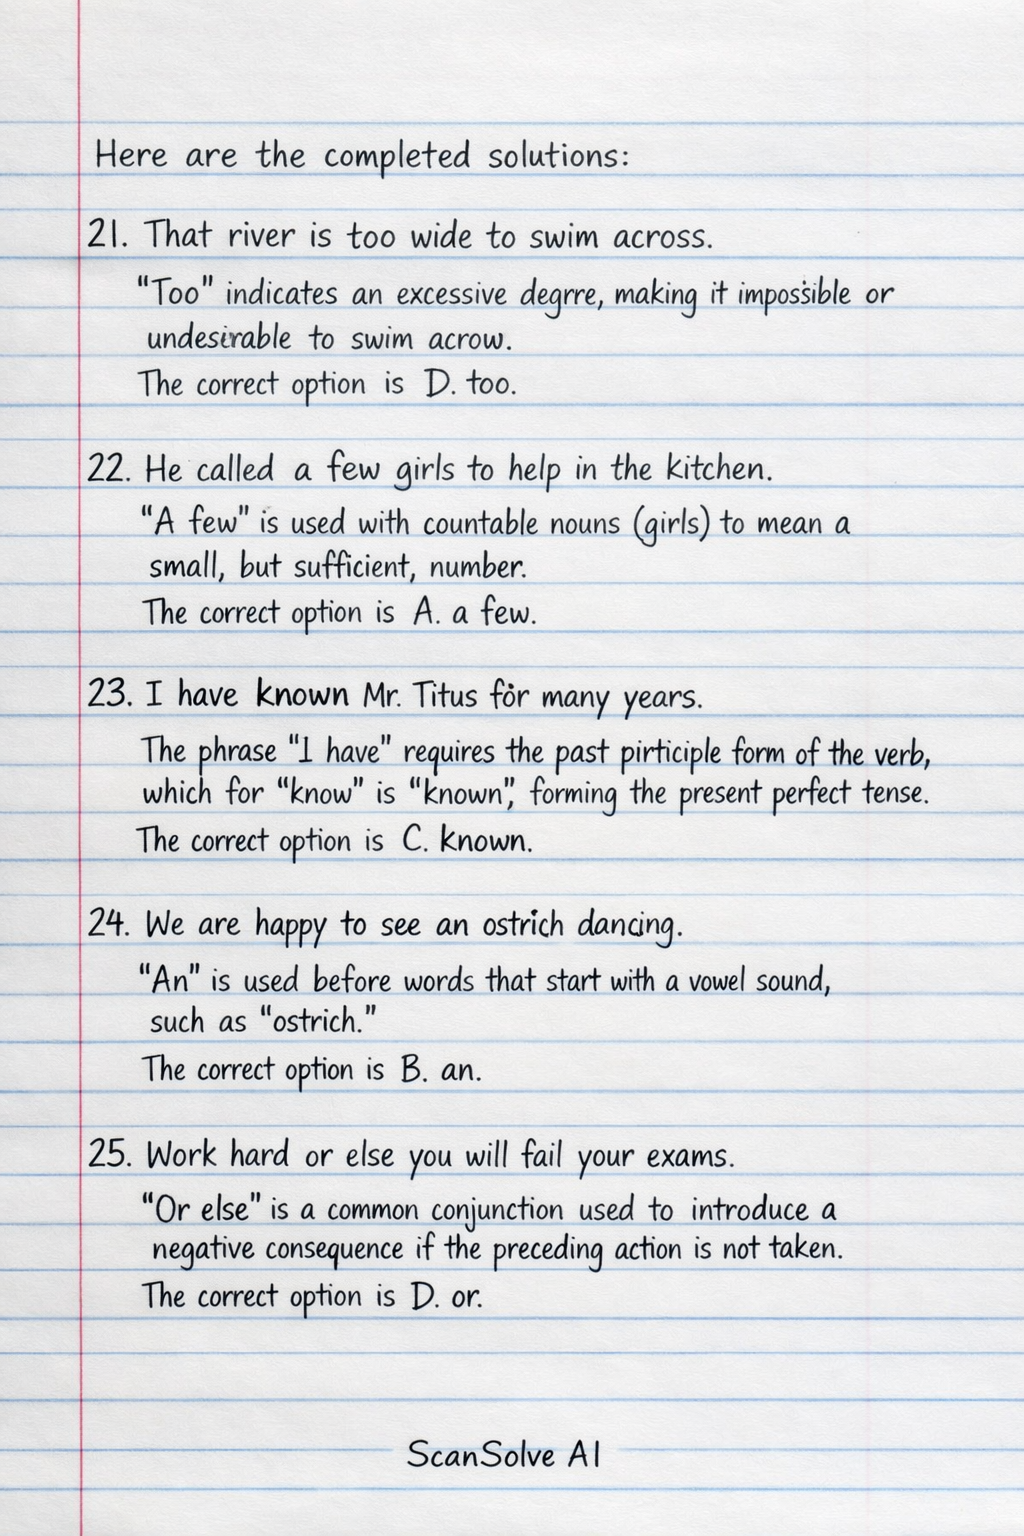 Here are the completed solutions:
21. That river is too wide to swim across.
"Too" indicates an excessive degrre, making it impossible or
undesirable to swim acrow.
The correct option is D. too.
22. He called a few girls to help in the kitchen.
"A few" is used with countable nouns (girls) to mean a
small, but sufficient, number.
The correct option is A. a few.
23. I have known Mr. Titus for many years.
The phrase "I have" requires the past pirticiple form of the verb,
which for "know" is "known", forming the present perfect tense.
The correct option is C. known.
24. We are happy to see an ostrich dancing.
"An" is used before words that start with a vowel sound,
such as "ostrich."
The correct option is B. an.
25. Work hard or else you will fail your exams.
"Or else" is a common conjunction used to introduce a
negative consequence if the preceding action is not taken.
The correct option is D. or.
ScanSolve AI